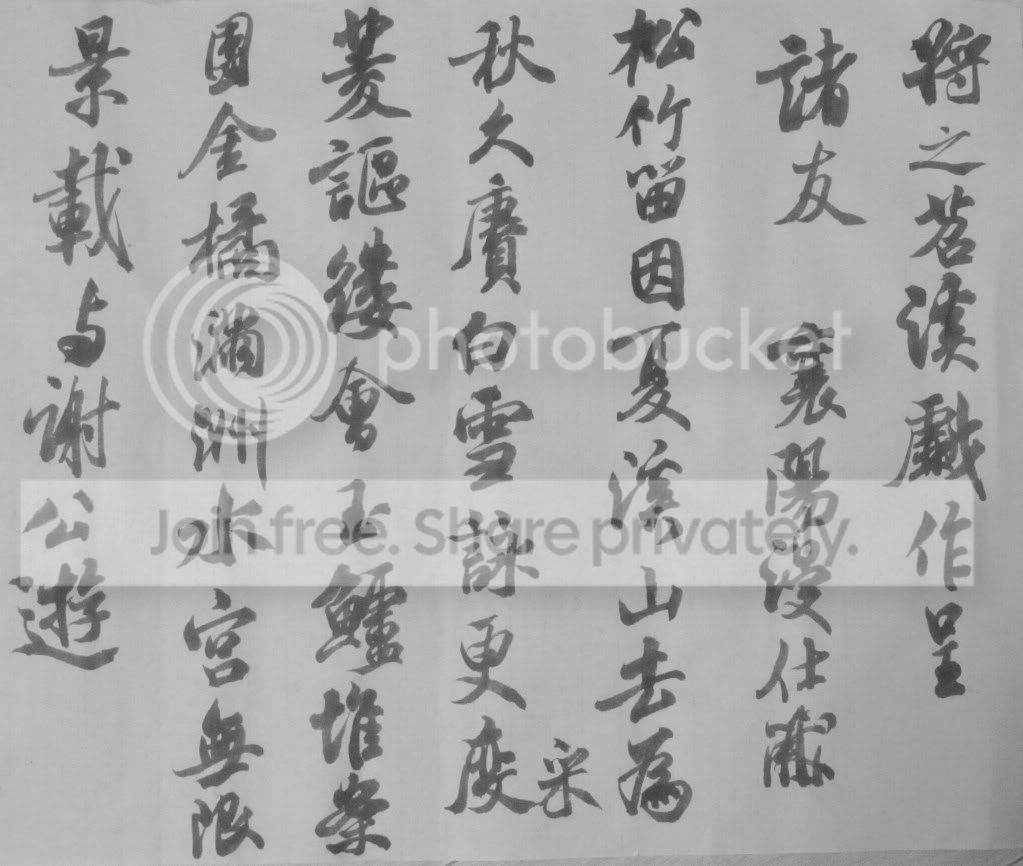 將之苕溪戲作呈
諸友 襄陽漫仕黻
松竹留因夏溪山去為
秋久賡白雪詠更度采
菱謳縷會玉鱸堆案
團金橘滿洲水宮無限
景載与謝公遊
photobucket
Join free. Share privately.